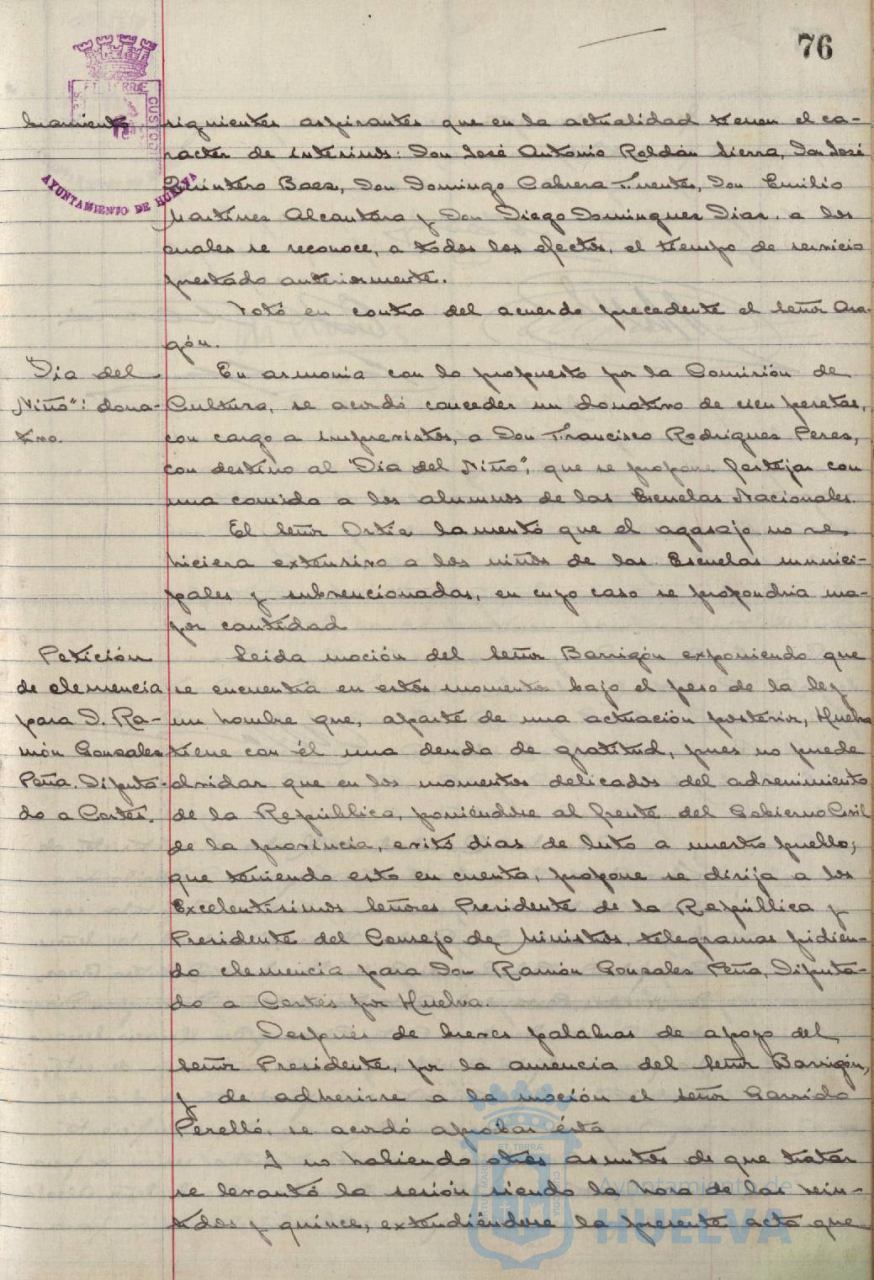 76
bramiento
siguientes aspirantes que en la actualidad tienen el ca-
racter de interinos: Don José Antonio Roldán Sierra, Don José
Quintero Baez, Don Domingo Cabrera Fuentes, Don Emilio
Martinez Alcantara y Don Diego Dominguez Diaz, a los
cuales se reconoce, a todos los efectos, el tiempo de servicio
prestado anteriormente.
Votó en contra del acuerdo precedente el Señor Ara-
gón.
"Dia del
Niño": dona-
tivo.
En armonia con lo propuesto por la Comisión de
Cultura, se acordó conceder un donativo de cien pesetas,
con cargo a imprevistos, a Don Francisco Rodriguez Perez,
con destino al "Dia del Niño", que se propone festejar con
una comida a los alumnos de las Escuelas Nacionales.
El Señor Ortiz lamentó que el agasajo no se
hiciera extensivo a los niños de las Escuelas munici-
pales y subvencionadas, en cuyo caso se propondria ma-
yor cantidad
Petición
de clemencia
para D. Ra-
món Gonzalez
Peña. Diputa-
do a Cortes.
Leida moción del Señor Barrigón exponiendo que
se encuentra en estos momentos bajo el peso de la ley
un hombre que, aparte de una actuación posterior, Huelva
tiene con él una deuda de gratitud, pues no puede
olvidar que en los momentos delicados del advenimiento
de la República, poniéndose al frente del Gobierno Civil
de la provincia, evitó dias de luto a nuestro pueblo;
que teniendo esto en cuenta, propone se dirija a los
Excelentisimos Señores Presidente de la República y
Presidente del Consejo de Ministros, telegramas pidien-
do clemencia para Don Ramón Gonzalez Peña, Diputa-
do a Cortes por Huelva.
Después de breves palabras de apoyo del
Señor Presidente, por la ausencia del Señor Barrigón,
y de adherirse a la moción el Señor Garrido
Perelló, se acordó aprobar ésta
Y no habiendo otros asuntos de que tratar
se levantó la sesión siendo la hora de las vein-
tidos y quince, extendiéndose la presente acta que
AYUNTAMIENTO DE HUELVA
Ayuntamiento de
HUELVA